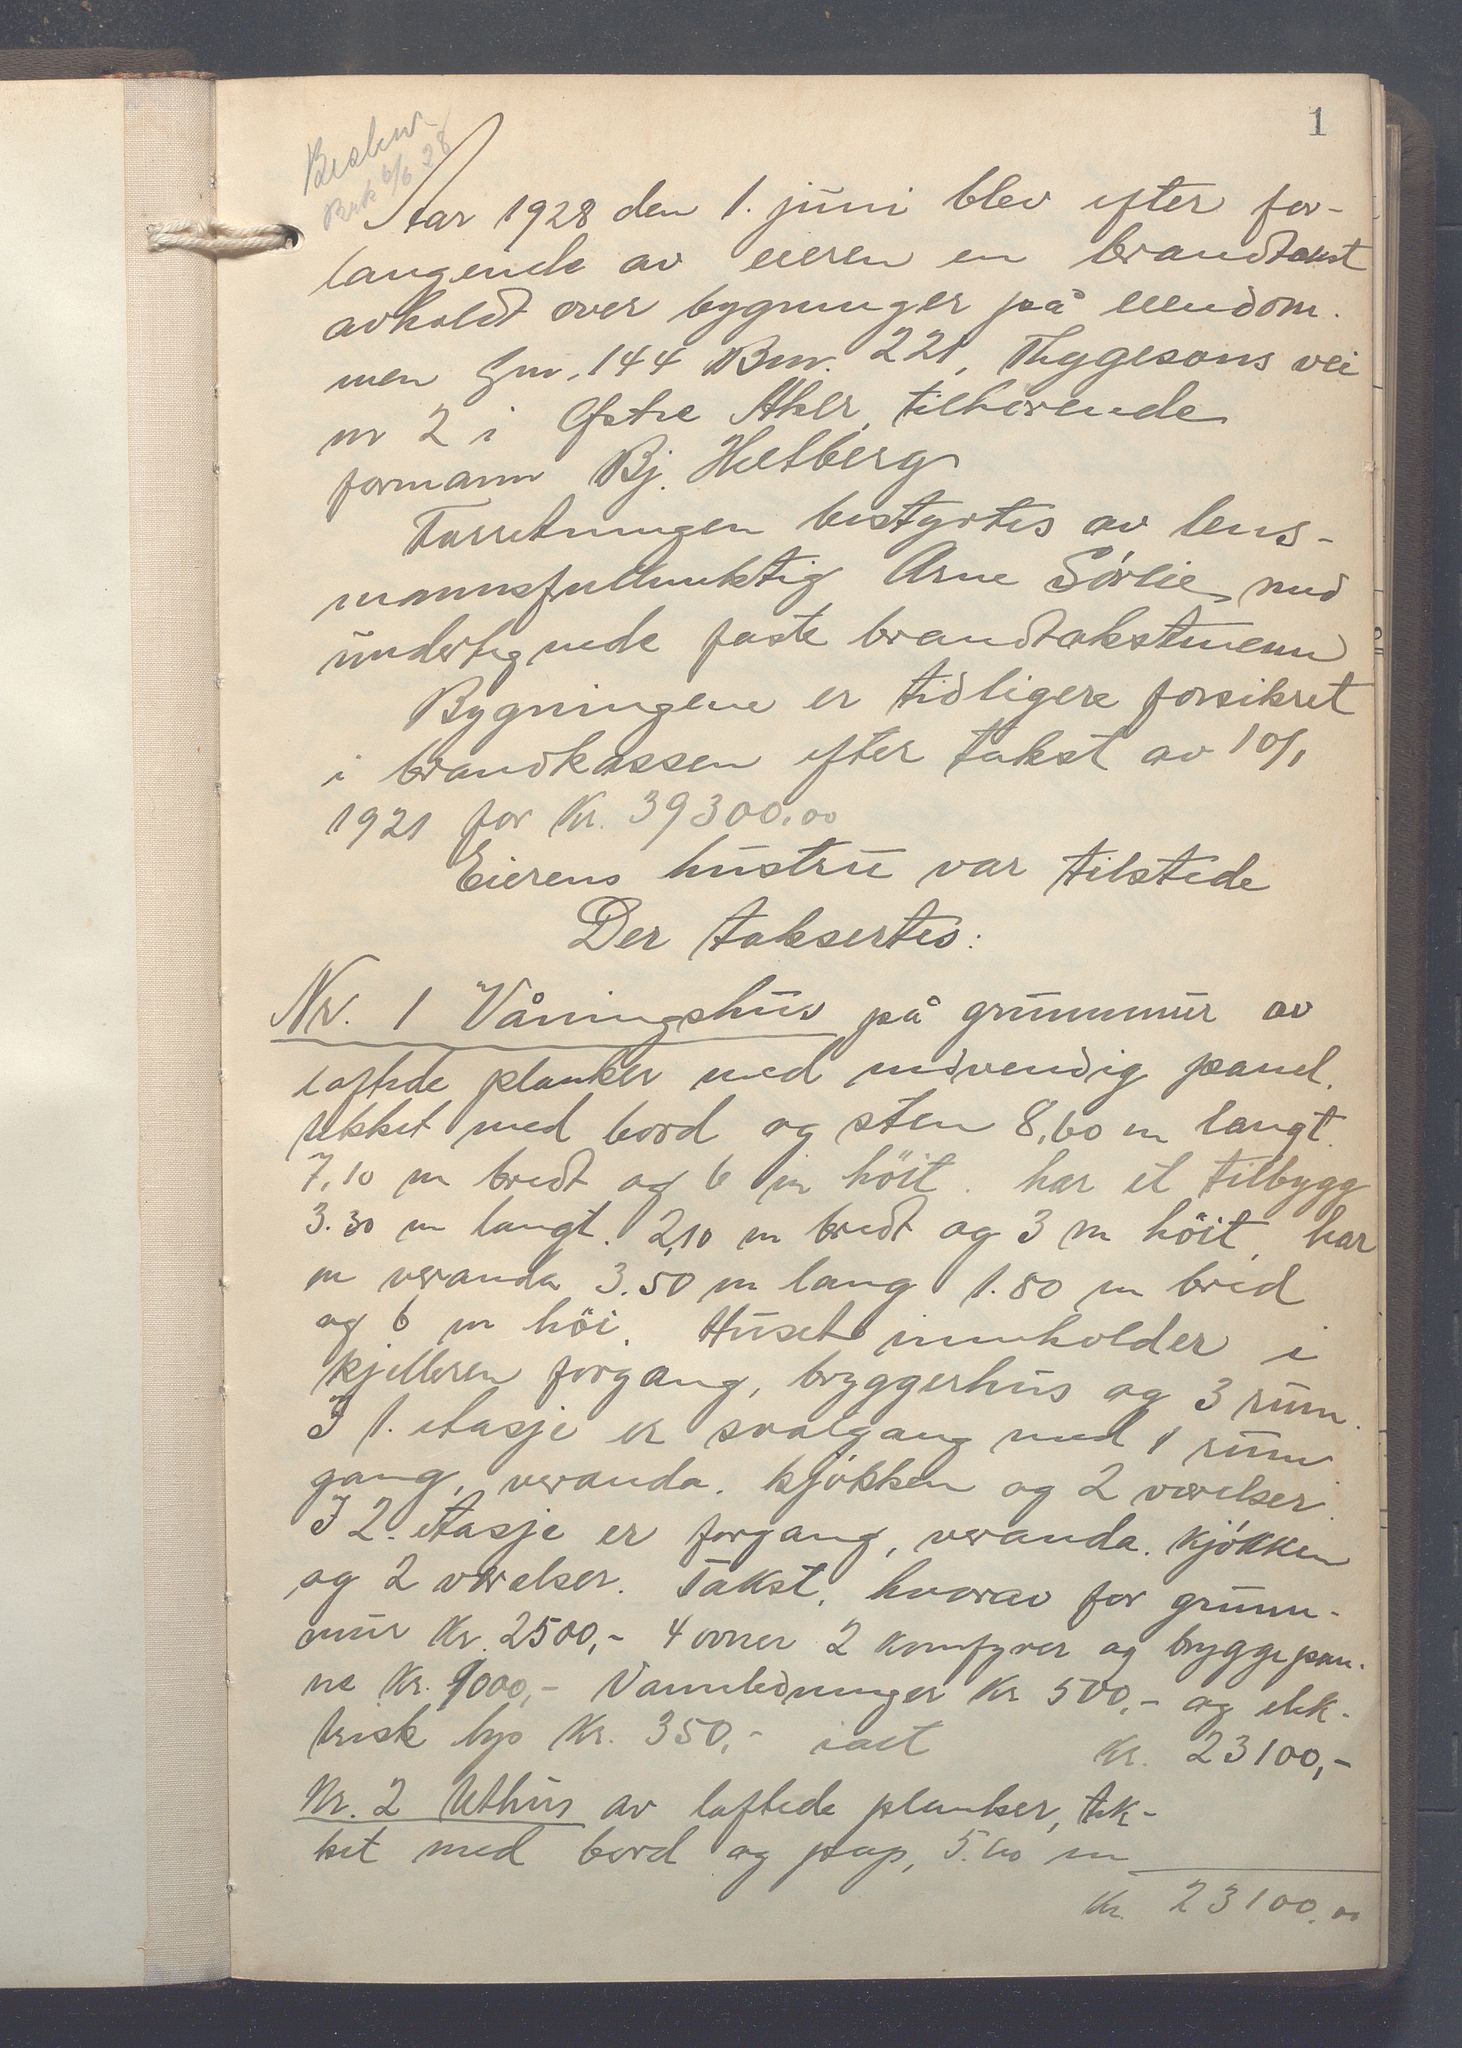 1
Beskr
Brk 6/6 28
Aar 1928 den 1. juni blev efter for-
langende av eieren en brandtakst
avholdt over bygninger på eiendom-
men Gnr. 144 Bnr. 221, Thygesons vei
nr 2 i Østre Aker, tilhørende
formann Bj. Hetberg
Forretningen bestyrtes av lens-
mannsfullmektig Arne Sørlie med
undertegnede faste brandtakstmenn
Bygningene er tidligere forsikret
i brandkassen efter takst av 10/1
1921 for Kr. 39300,00
Eierens hustru var tilstede
Der taksertes:
Nr. 1 Våningshus på grunnmur av
laftede planker med utvendig panel.
tekket med bord og sten 8,60 m langt.
7,10 m bredt og 6 m höit. har et tilbygg
3.30 m langt. 2,10 m bredt og 3 m höit. har
en veranda 3.50 m lang 1.80 m bred
og 6 m höi. Huset inneholder i
kjelleren forgang, bryggerhus og 3 rum.
I 1. etasje er svalgang med 1 rum
gang, veranda. kjökken og 2 værelser.
I 2. etasje er forgang, veranda. kjökken
og 2 værelser. Takst, hvorav for grunn-
mur Kr. 2500,- 4 ovner 2 komfyrer og bryggepan-
ne Kr. 1000,- Vannledninger Kr 500,- og elek-
trisk lys Kr. 350,- ialt Kr. 23100,-
Nr. 2 Uthus av laftede planker, tek-
ket med bord og pap, 5.60 m
Kr. 23100,00